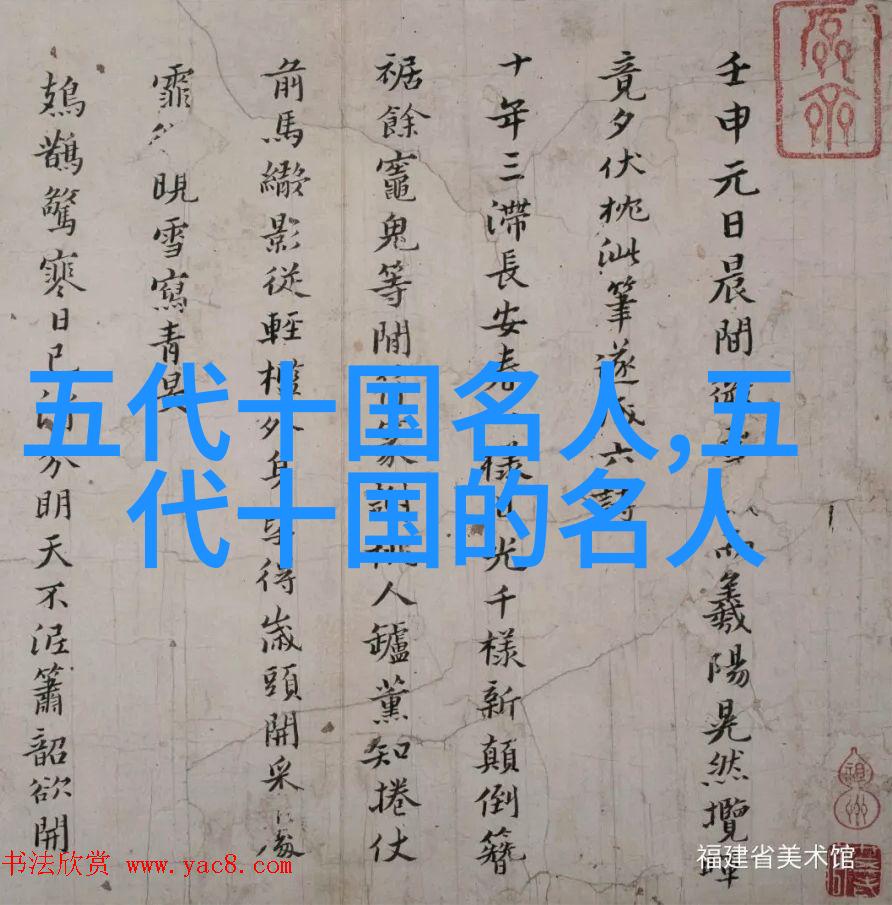 壬申元日晨間羲陽晃然攬
竟夕伏枕泚筆遂成六詩
十年三滯長安春樣光千樣新顛倒簪
裾餘竈鬼等閒人鑪薰知捲仗
前馬影從輕外身得歲頭開采
霏晛雪寫青旻
鳷鵲驚寒日已分明天不浥簫韶欲開
五代十国名人,五
代十国的名人
福建省美术馆
书法欣赏 www.yac8.com